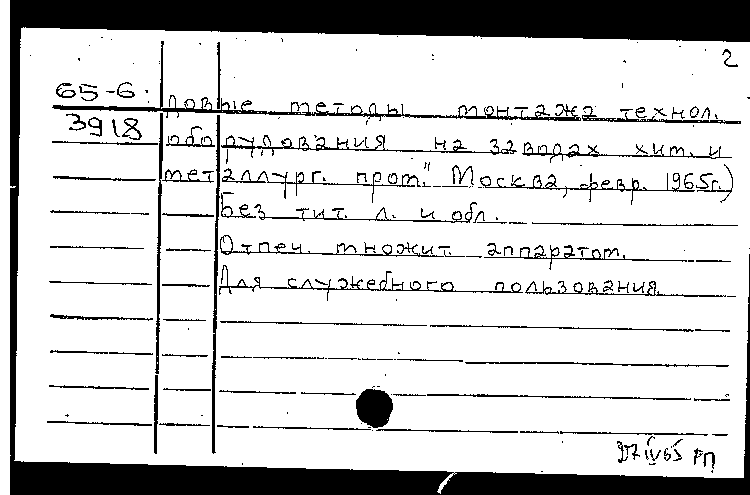 2
65-6:
3918
довые методы монтажа технол.
оборудования на заводах хим. и
металлург. пром." Москва, февр. 1965г.)
Без тит. л. и обл.
Отпеч. множит. аппаратом.
Для служебного пользования.
27 IV 65 РП